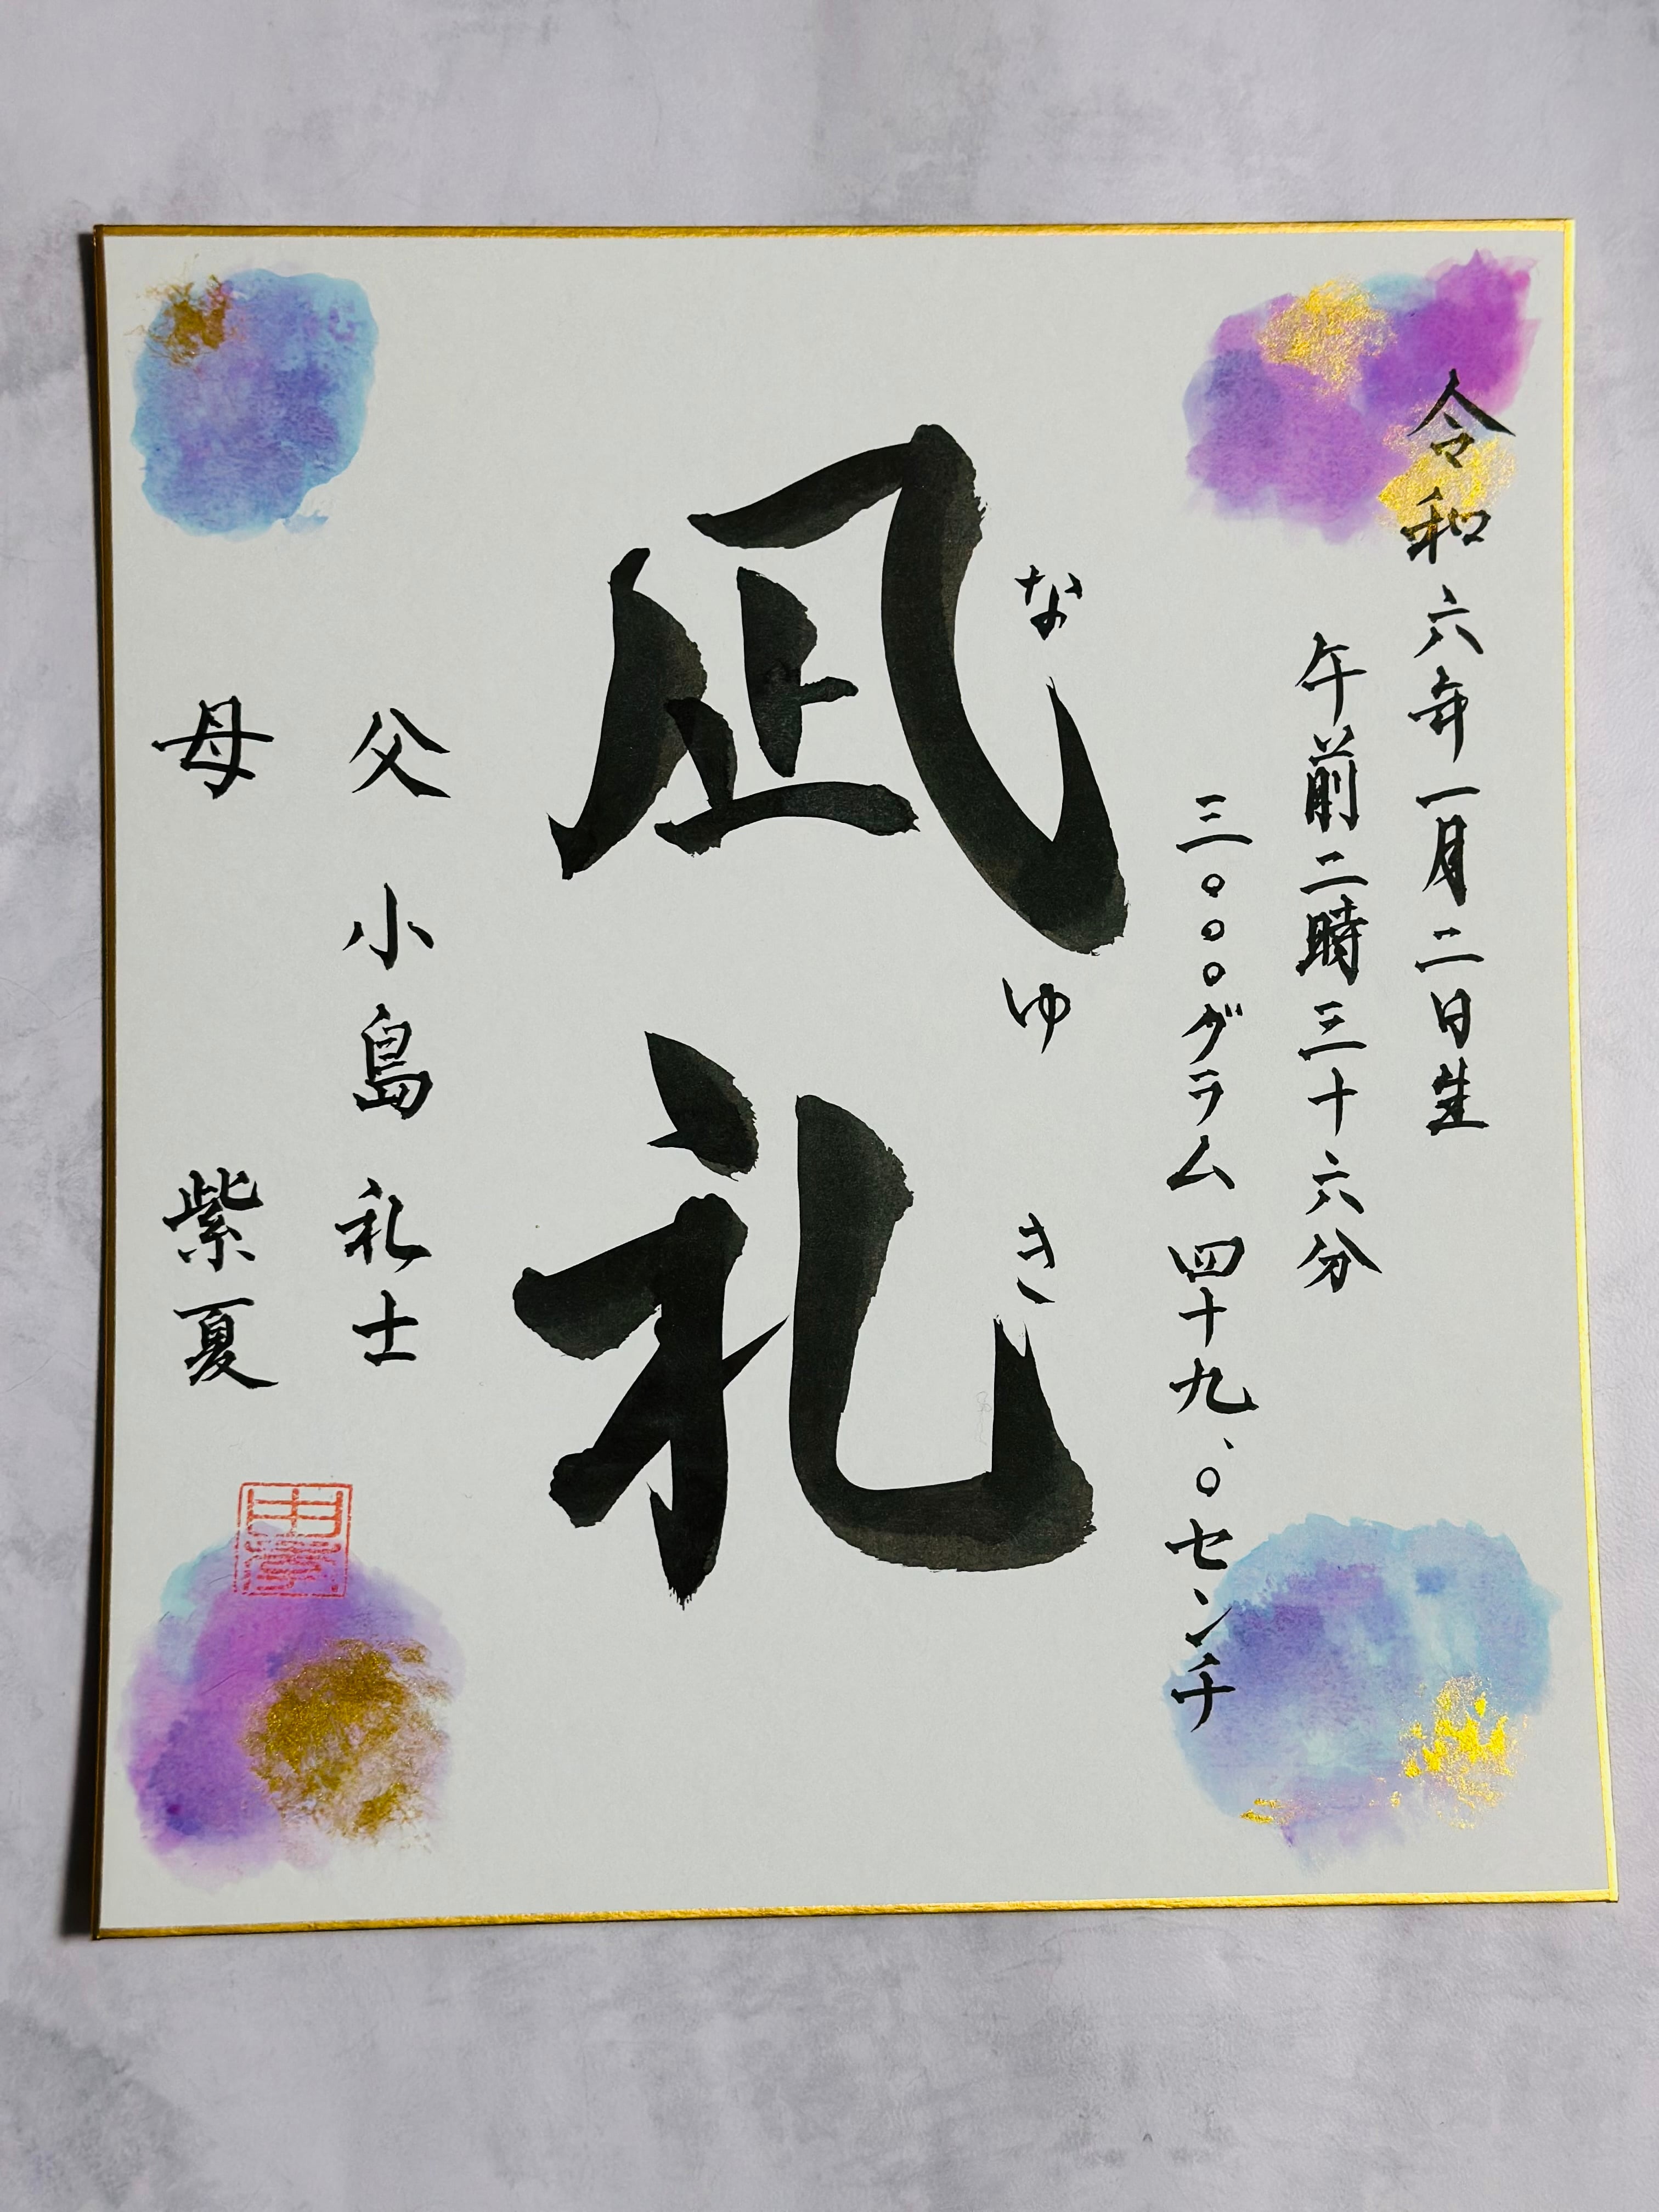 令和六年一月二日生
午前二時三十六分
三〇〇〇グラム 四十九、〇センチ
なゆき
凪礼
父 小島 礼士
母 紫夏